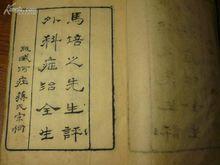 馬培之先生評
外科症治全生
藏河 蔣氏宗祠